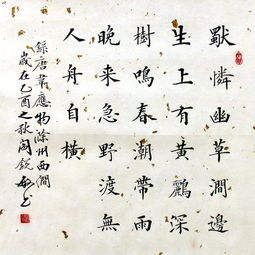 獨憐幽草澗邊
生上有黃鸝深
樹鳴春潮帶雨
晚来急野渡無
人舟自橫
錄唐韋應物滁州西澗
歲在乙酉之秋